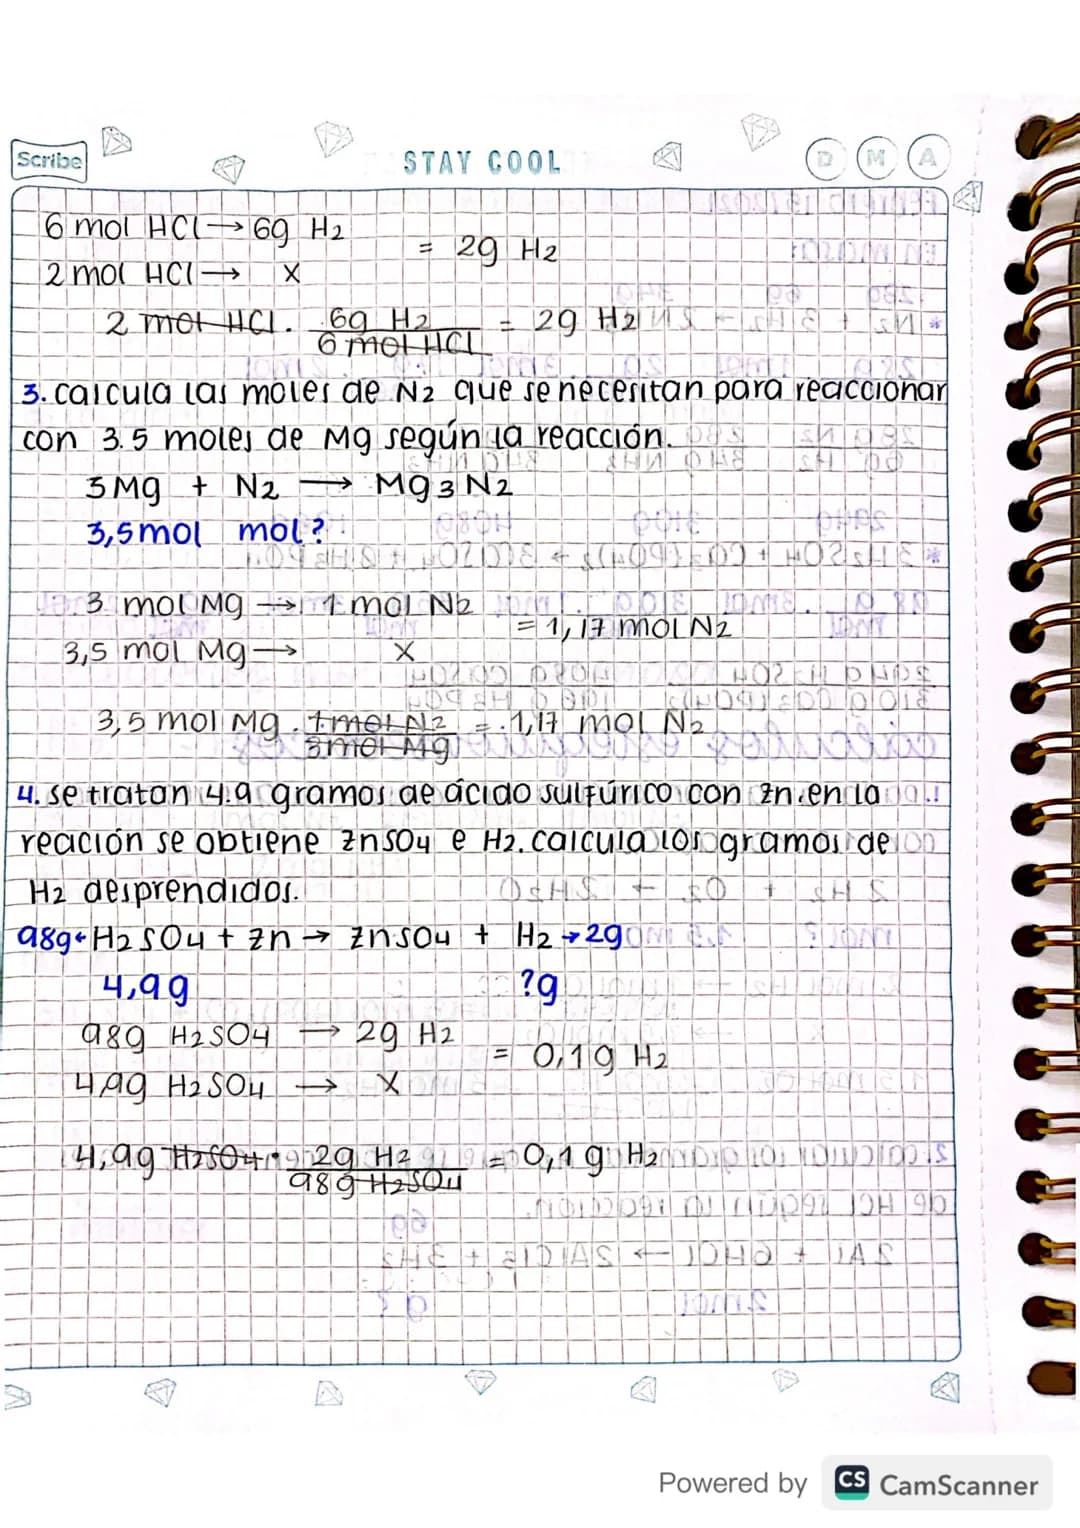 Scribe
STAY COOL
D M A
6 mol HCl → 6g H2
= 2g H2
2 mol HCl → X
2 mol HCl . 6g H2 = 2g H2
6 mol HCl
3. calcula las moles de N2 que se necesitan para reaccionar
con 3.5 moles de Mg según la reacción.
3Mg + N2 → Mg3N2
3,5mol mol?
3 mol Mg → 1 mol N2
= 1,17 mol N2
3,5 mol Mg → X
3,5 mol Mg . 1 mol N2 = 1,17 mol N2
3 mol Mg
4. se tratan 4.9 gramos de ácido sulfúrico con Zn. en la
reación se obtiene ZnSO4 e H2. calcula los gramos de
H2 desprendidos.
98g ← H2SO4 + Zn → ZnSO4 + H2 → 2g
4,9g ?g
98g H2SO4 → 2g H2
= 0,1g H2
4,9g H2SO4 → X
4,9g H2SO4 . 2g H2 = 0,1g H2
98g H2SO4
Powered by CS CamScanner